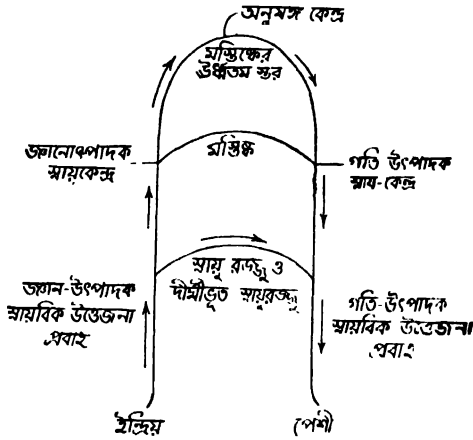 অনুষঙ্গ কেন্দ্র
মস্তিষ্কের
উর্ধ্বতম স্তর
জ্ঞানোৎপাদক
স্নায়ুকেন্দ্র
মস্তিষ্ক
গতি উৎপাদক
স্নায়ু-কেন্দ্র
স্নায়ু রজ্জু ও
দীর্ঘীভূত স্নায়ুরজ্জু
জ্ঞান-উৎপাদক
স্নায়বিক উত্তেজনা
প্রবাহ
গতি-উৎপাদক
স্নায়বিক উত্তেজনা
প্রবাহ
ইন্দ্রিয়
পেশী